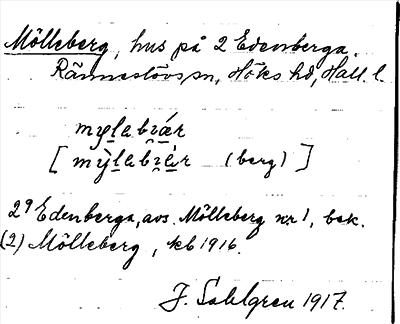 Mölleberg, hus på 2 Edenberga.
Ränneslövs sn, Höks hd, Hall. l.
mylabɛ̯ár
[ mỳlabɛ̯ár (berg) ]
2⁹ Edenberga, avs. Mölleberg nr 1, bek.
(2) Mölleberg, kb 1916.
J. Sahlgren 1917.